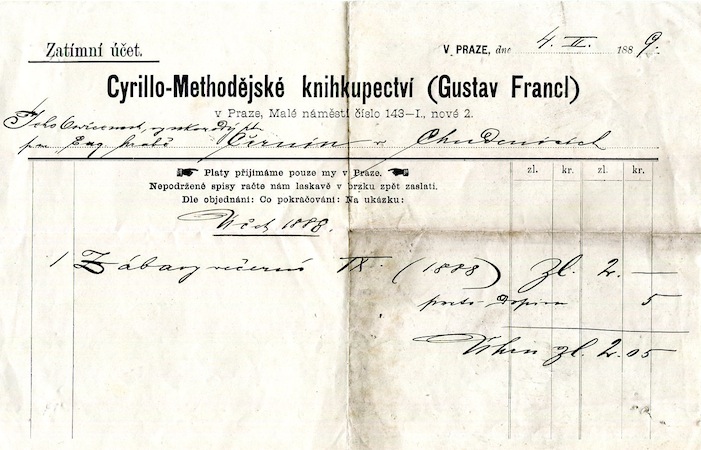 Zatímní účet.
V PRAZE, dne 4. II. 1889.
Cyrillo-Methodějské knihkupectví (Gustav Francl)
v Praze, Malé náměstí číslo 143-I., nové 2.
pan Černín v Chudenicích
zl. kr. zl. kr.
Platy přijímáme pouze my v Praze.
Nepodržené spisy račte nám laskavě v brzku zpět zaslati.
Dle objednání: Co pokračování: Na ukázku:
Účet 1888.
1 Zábavy večerní IX. (1888) zl. 2. —
porto 5
Úhrn zl. 2.05